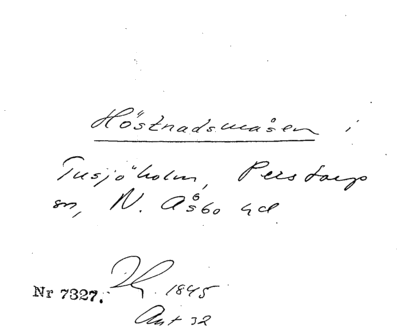 Höstnadsmåsen i
Tusjöholm, Perstorp
sn, N. Åsbo hd
Nr 7327. 1845
Ant 32